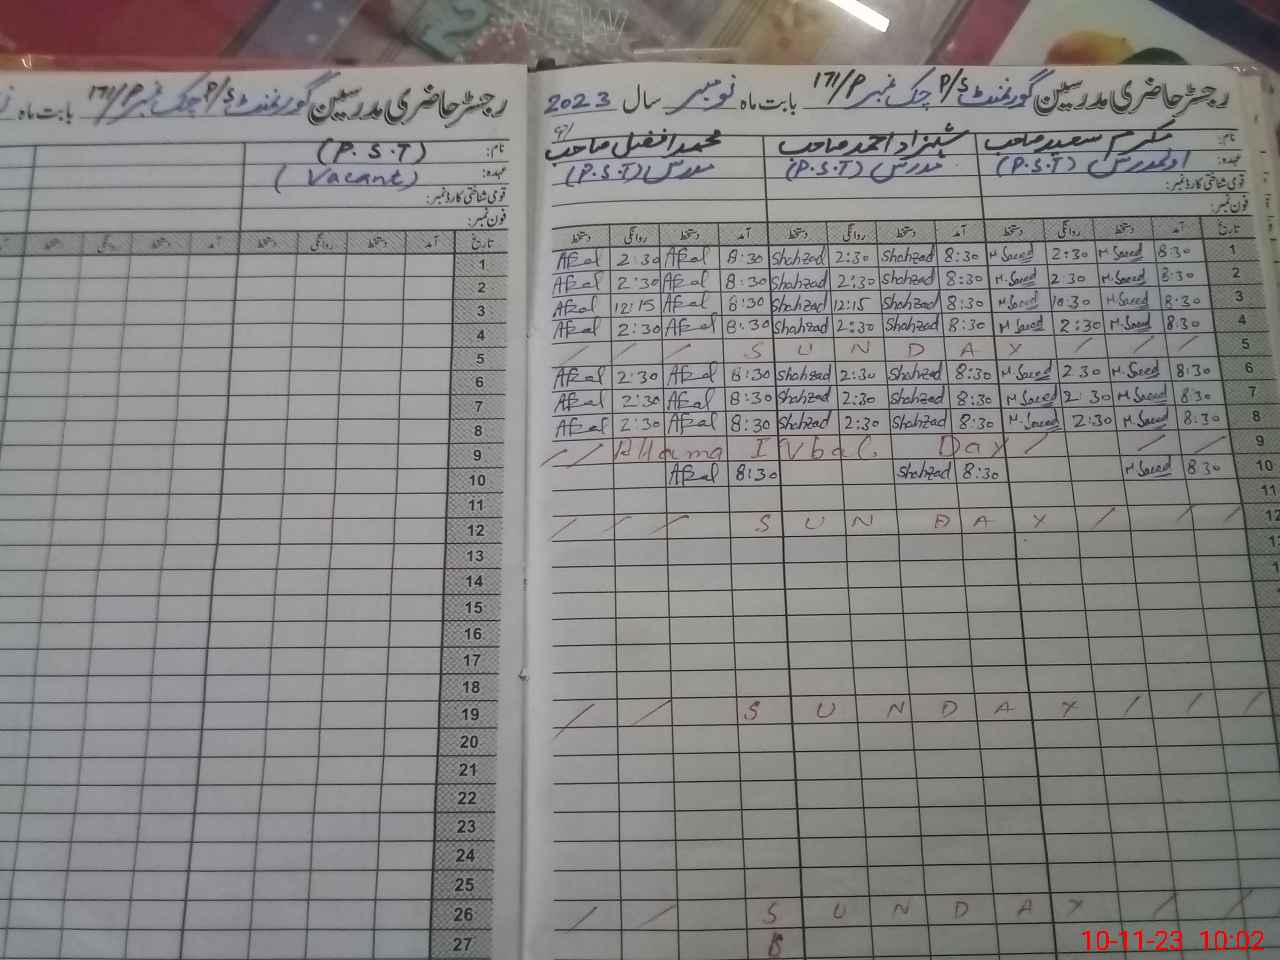 رجسٹر حاضری مدرسین گورنمنٹ P/S چک نمبر 171/P بابت ماہ نومبر سال 2023
نام: مکرم سعید صاحب شہزاد احمد صاحب محمد افضل صاحب
عہدہ: اول مدرس (P.S.T) مدرس (P.S.T) مدرس (P.S.T)
قومی شناختی کارڈ نمبر:
فون نمبر:
تاریخ آمد دستخط روانگی دستخط آمد دستخط روانگی دستخط آمد دستخط روانگی دستخط
1 8:30 M.Saeed 2:30 M.Saeed 8:30 Shahzad 2:30 Shahzad 8:30 Afzal 2:30 Afzal
2 8:30 M.Saeed 2:30 M.Saeed 8:30 Shahzad 2:30 Shahzad 8:30 Afzal 2:30 Afzal
3 8:30 M.Saeed 10:30 M.Saeed 8:30 Shahzad 12:15 Shahzad 8:30 Afzal 12:15 Afzal
4 8:30 M.Saeed 2:30 M.Saeed 8:30 Shahzad 2:30 Shahzad 8:30 Afzal 2:30 Afzal
5 / / / SUNDAY / / /
6 8:30 M.Saeed 2:30 M.Saeed 8:30 Shahzad 2:30 Shahzad 8:30 Afzal 2:30 Afzal
7 8:30 M.Saeed 2:30 M.Saeed 8:30 Shahzad 2:30 Shahzad 8:30 Afzal 2:30 Afzal
8 8:30 M.Saeed 2:30 M.Saeed 8:30 Shahzad 2:30 Shahzad 8:30 Afzal 2:30 Afzal
9 / / Allama IVbal Day / / /
10 8:30 M.Saeed 8:30 Shahzad 8:30 Afzal
11
12 / / / SUNDAY / / /
/ / SUNDAY / / /
/ / SUNDAY / /
B
رجسٹر حاضری مدرسین گورنمنٹ P/S چک نمبر 171/P بابت ماہ
نام: (P.S.T)
عہدہ: (Vacant)
قومی شناختی کارڈ نمبر:
فون نمبر:
تاریخ آمد دستخط روانگی دستخط آمد دستخط روانگی دستخط
1
2
3
4
5
6
7
8
9
10
11
12
13
14
15
16
17
18
19
20
21
22
23
24
25
26
27
10-11-23 10:02